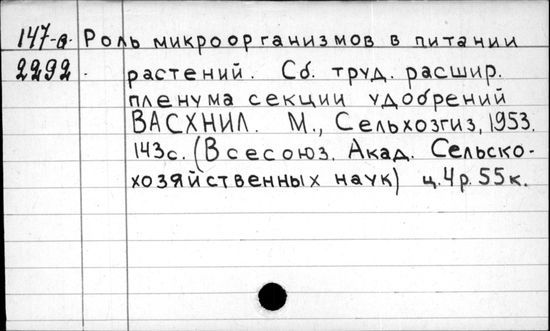 147-в. Роль микроорганизмов в питании
2292. растений. Сб. труд. расшир.
пленума секции удобрений
ВАСХНИЛ. М., Сельхозгиз, 1953.
143с. (Всесоюз. Акад. Сельско-
хозяйственных наук) ц. 4р. 55к.